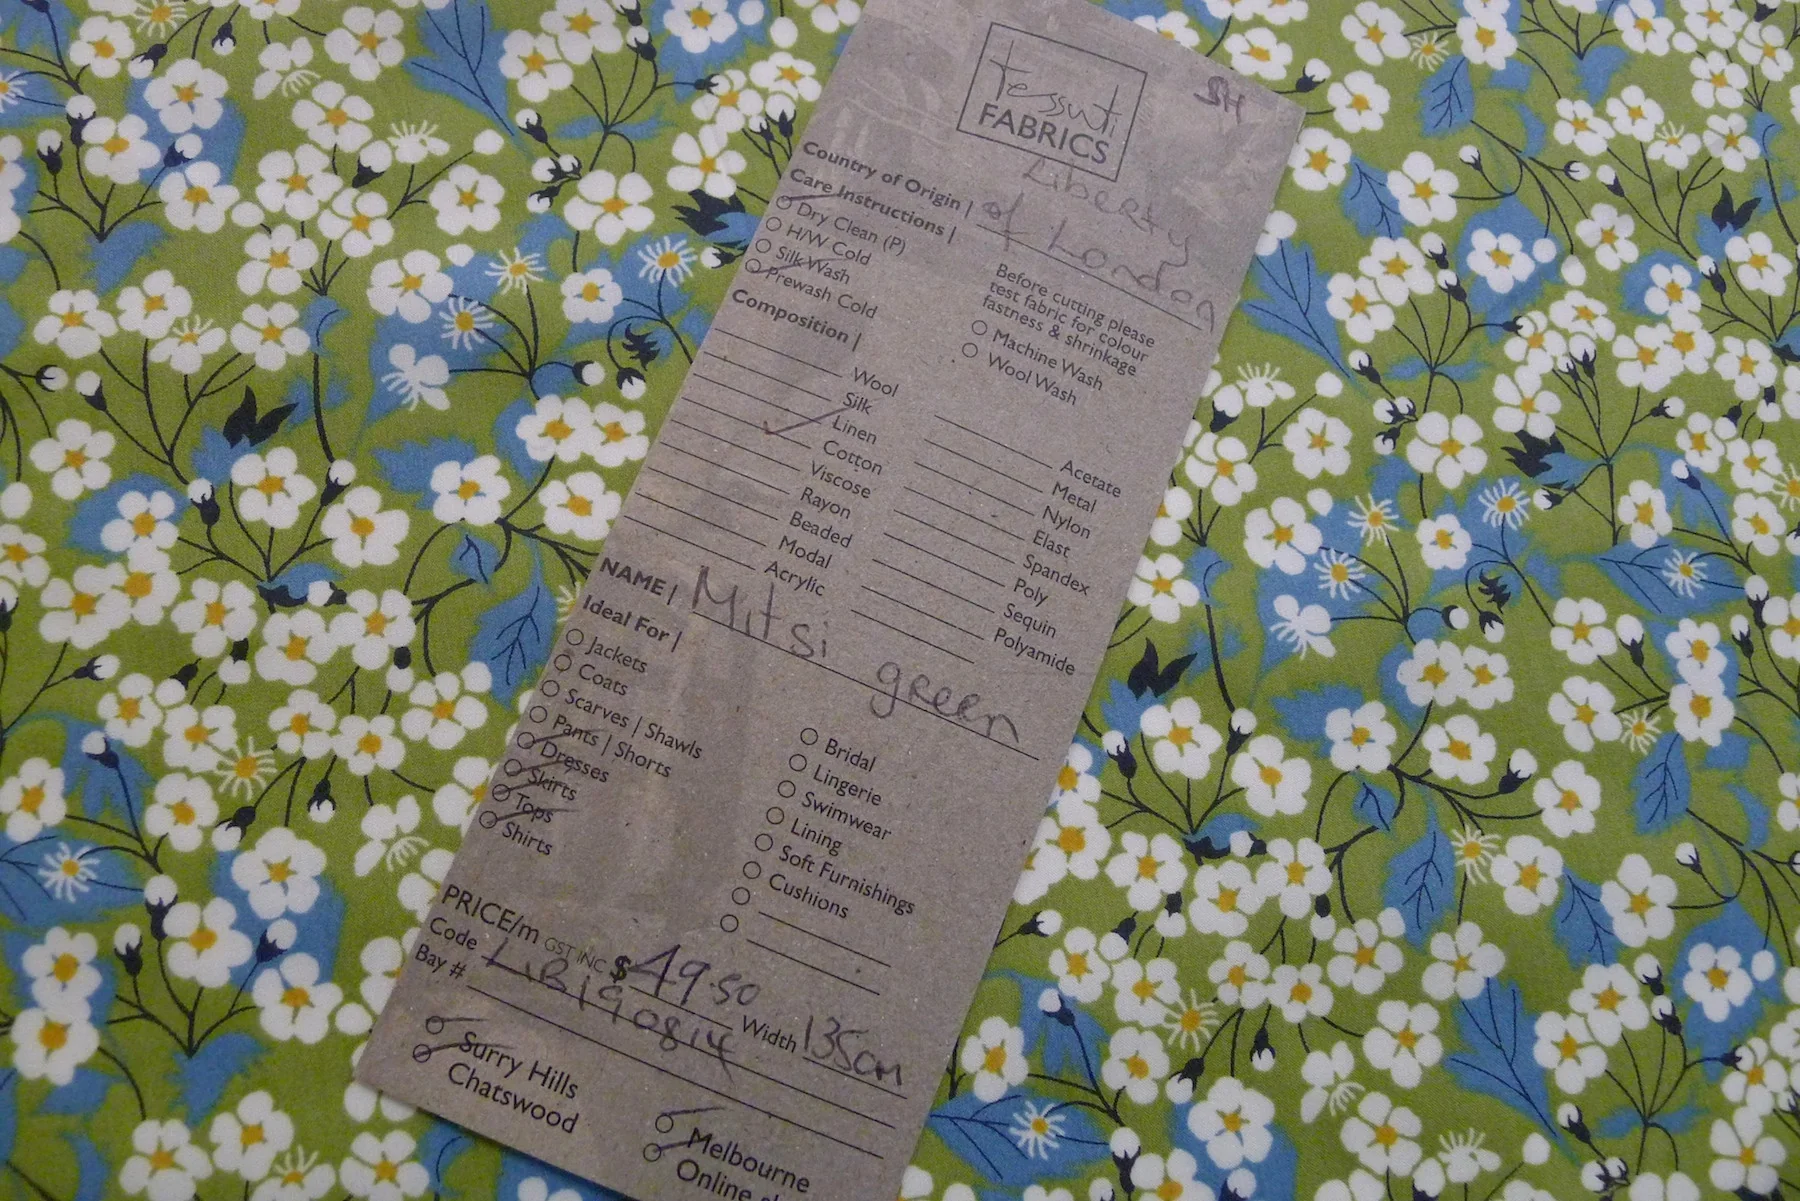 SH
tessuti
FABRICS
Country of Origin | Liberty
of London
Care Instructions |
Dry Clean (P)
H/W Cold
Silk Wash
Prewash Cold
Before cutting please
test fabric for colour
fastness & shrinkage
Machine Wash
Wool Wash
Composition |
Wool
Silk
Linen
Cotton
Viscose
Rayon
Beaded
Modal
Acrylic
Acetate
Metal
Nylon
Elast
Spandex
Poly
Sequin
Polyamide
NAME | Mitsi green
Ideal For |
Jackets
Coats
Scarves | Shawls
Pants | Shorts
Dresses
Skirts
Tops
Shirts
Bridal
Lingerie
Swimwear
Lining
Soft Furnishings
Cushions
PRICE/m GST INC $49.50 Width 135cm
Code LIB190814
Bay #
Surry Hills
Chatswood
Melbourne
Online